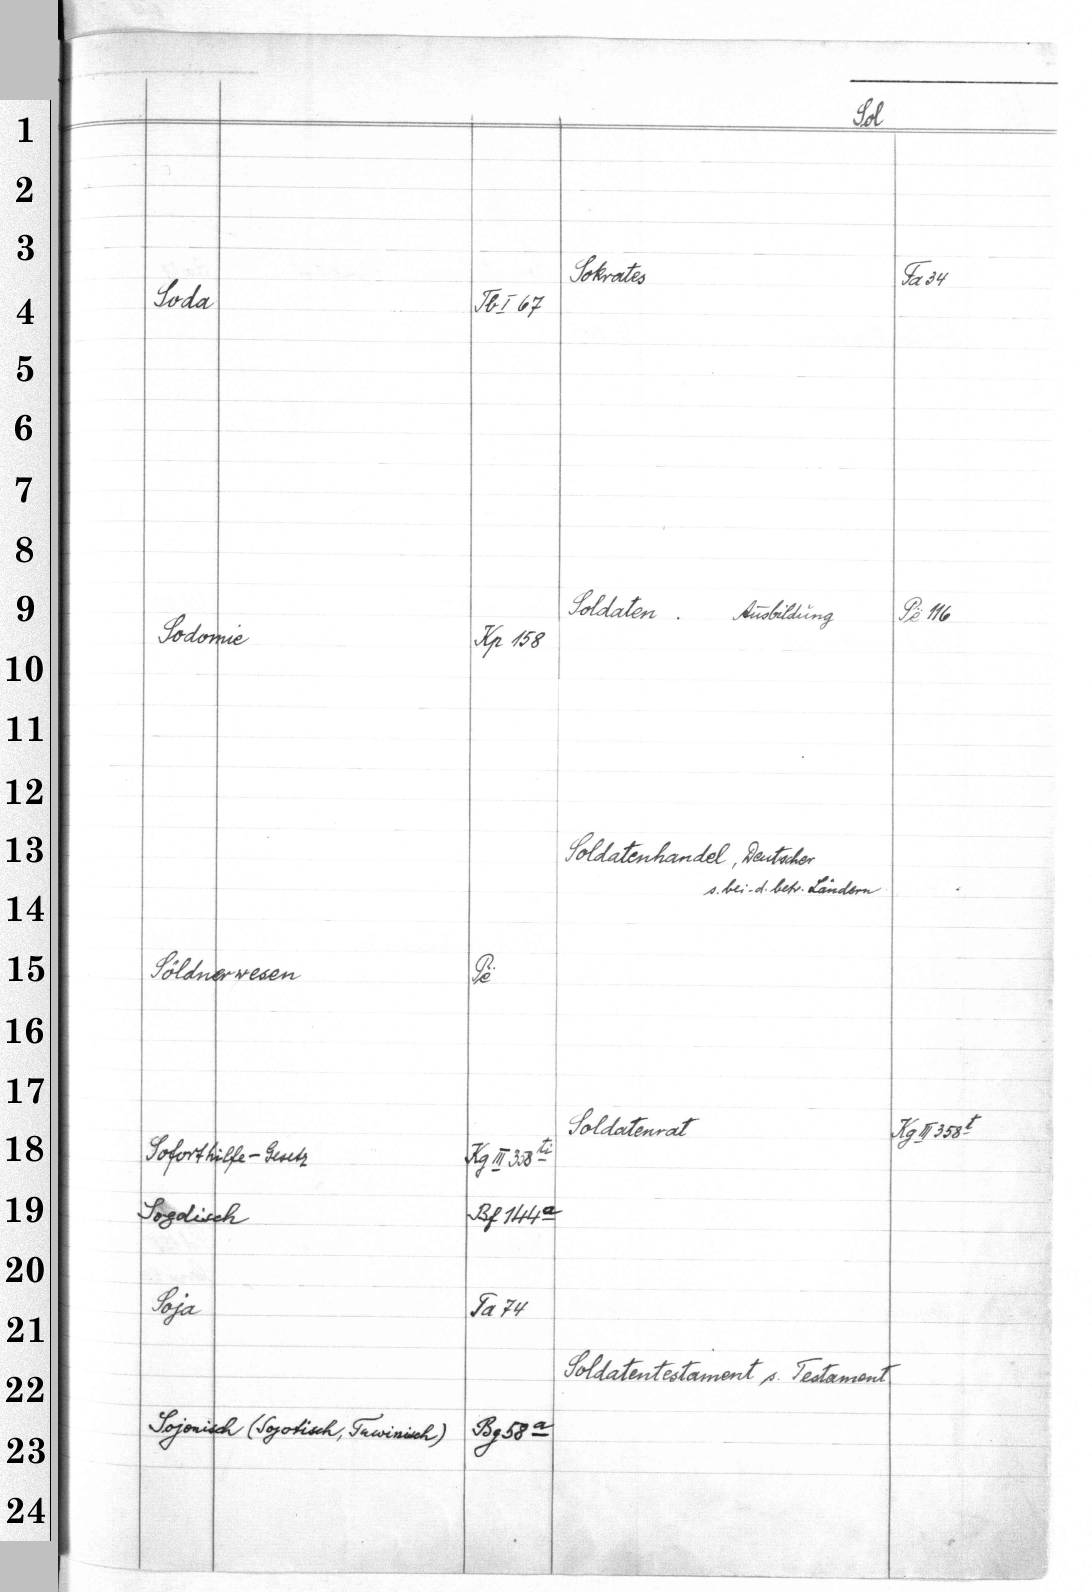 Sol
1
2
3
4
5
6
7
8
9
10
11
12
13
14
15
16
17
18
19
20
21
22
23
24
Soda Tb I 67
Sodomie Kp 158
Söldnerwesen Pë
Soforthilfe-Gesetz Kg III 358 ti
Sogdisch Bf 144 a
Soja Ta 74
Sojonisch (Sojotisch, Tuwinisch) Bg 58 a
Sokrates Fa 34
Soldaten . Ausbildung Pë 116
Soldatenhandel, Deutscher
s. bei d. betr. Ländern
Soldatenrat Kg III 358 t
Soldatentestament s. Testament